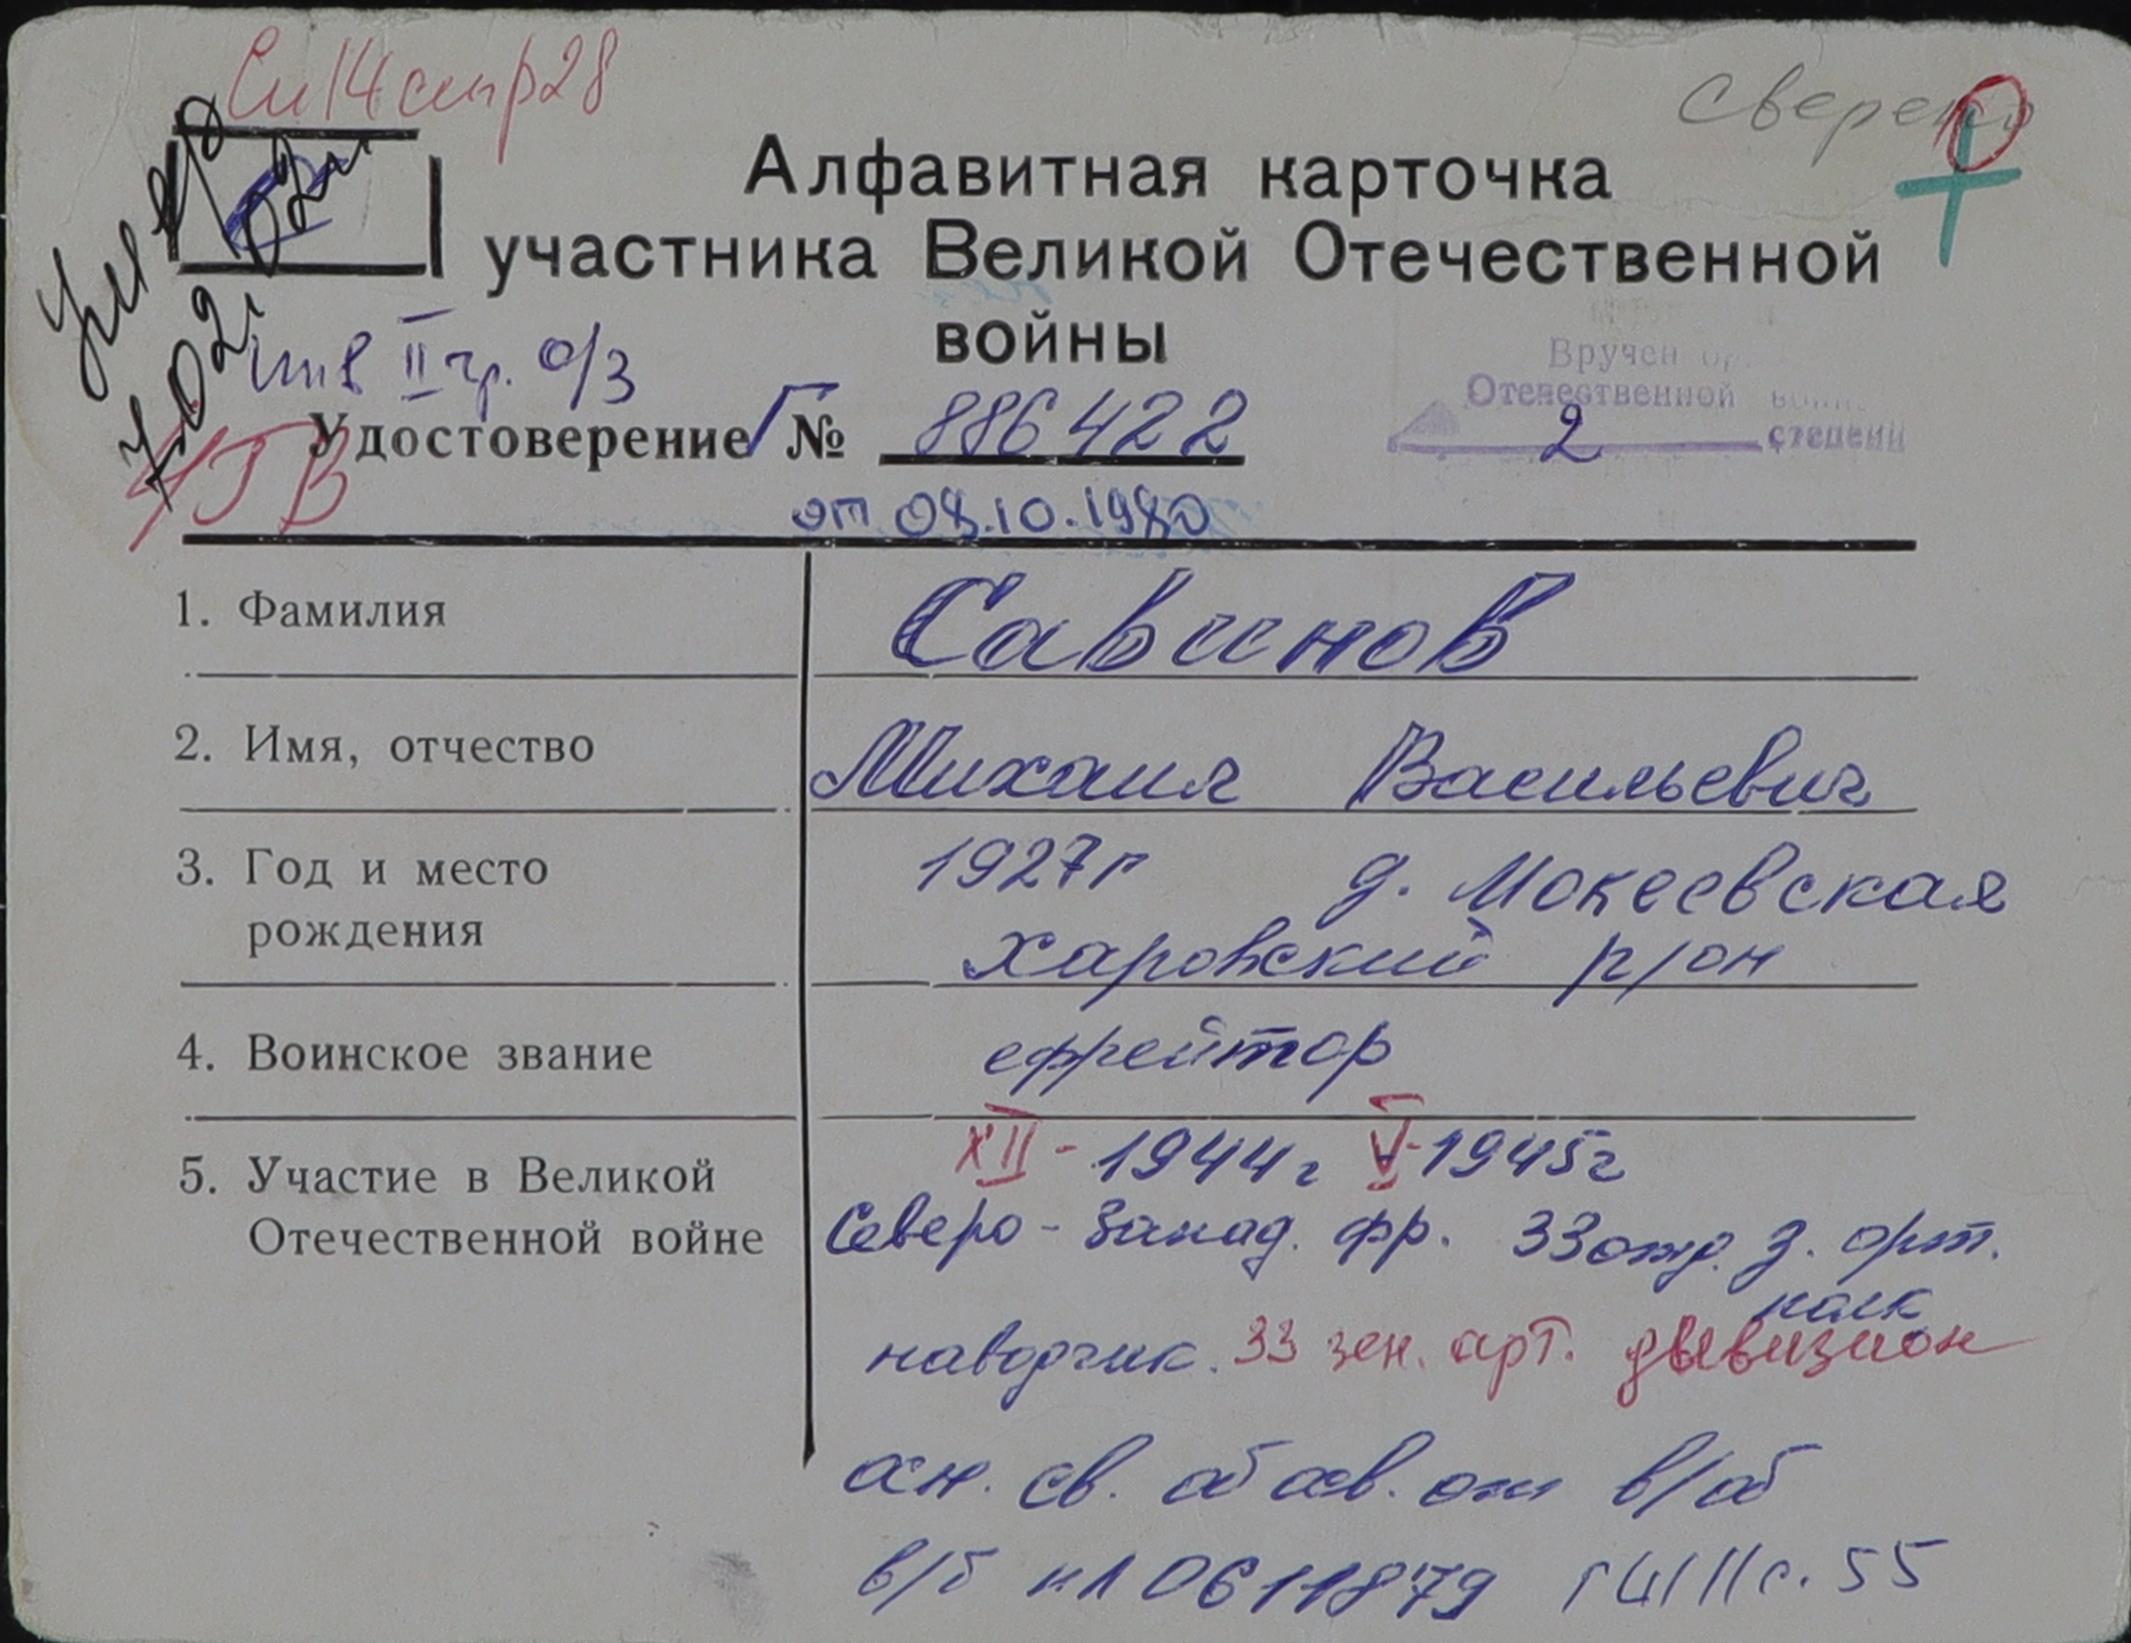 Сп 14 стр 28
Сверено
Умер
Алфавитная карточка
участника Великой Отечественной
войны
инв II гр. о/з
Вручен ор.
Отечественной войны
2 степени
Удостоверение № 886422
от 08.10.1980
УГВ
1. Фамилия
Савинов
2. Имя, отчество
Михаил Васильевич
3. Год и место
рождения
1927г д. Мокеевская
Харовский р/он
4. Воинское звание
ефрейтор
5. Участие в Великой
Отечественной войне
XII - 1944г V-1945г
Северо-Запад. фр. 33 отд. з. арт.
полк
наводчик. 33 зен. арт. дивизион
ан. св. об осв. от в/об
в/б НЛ 0611879 ГШ II с. 55